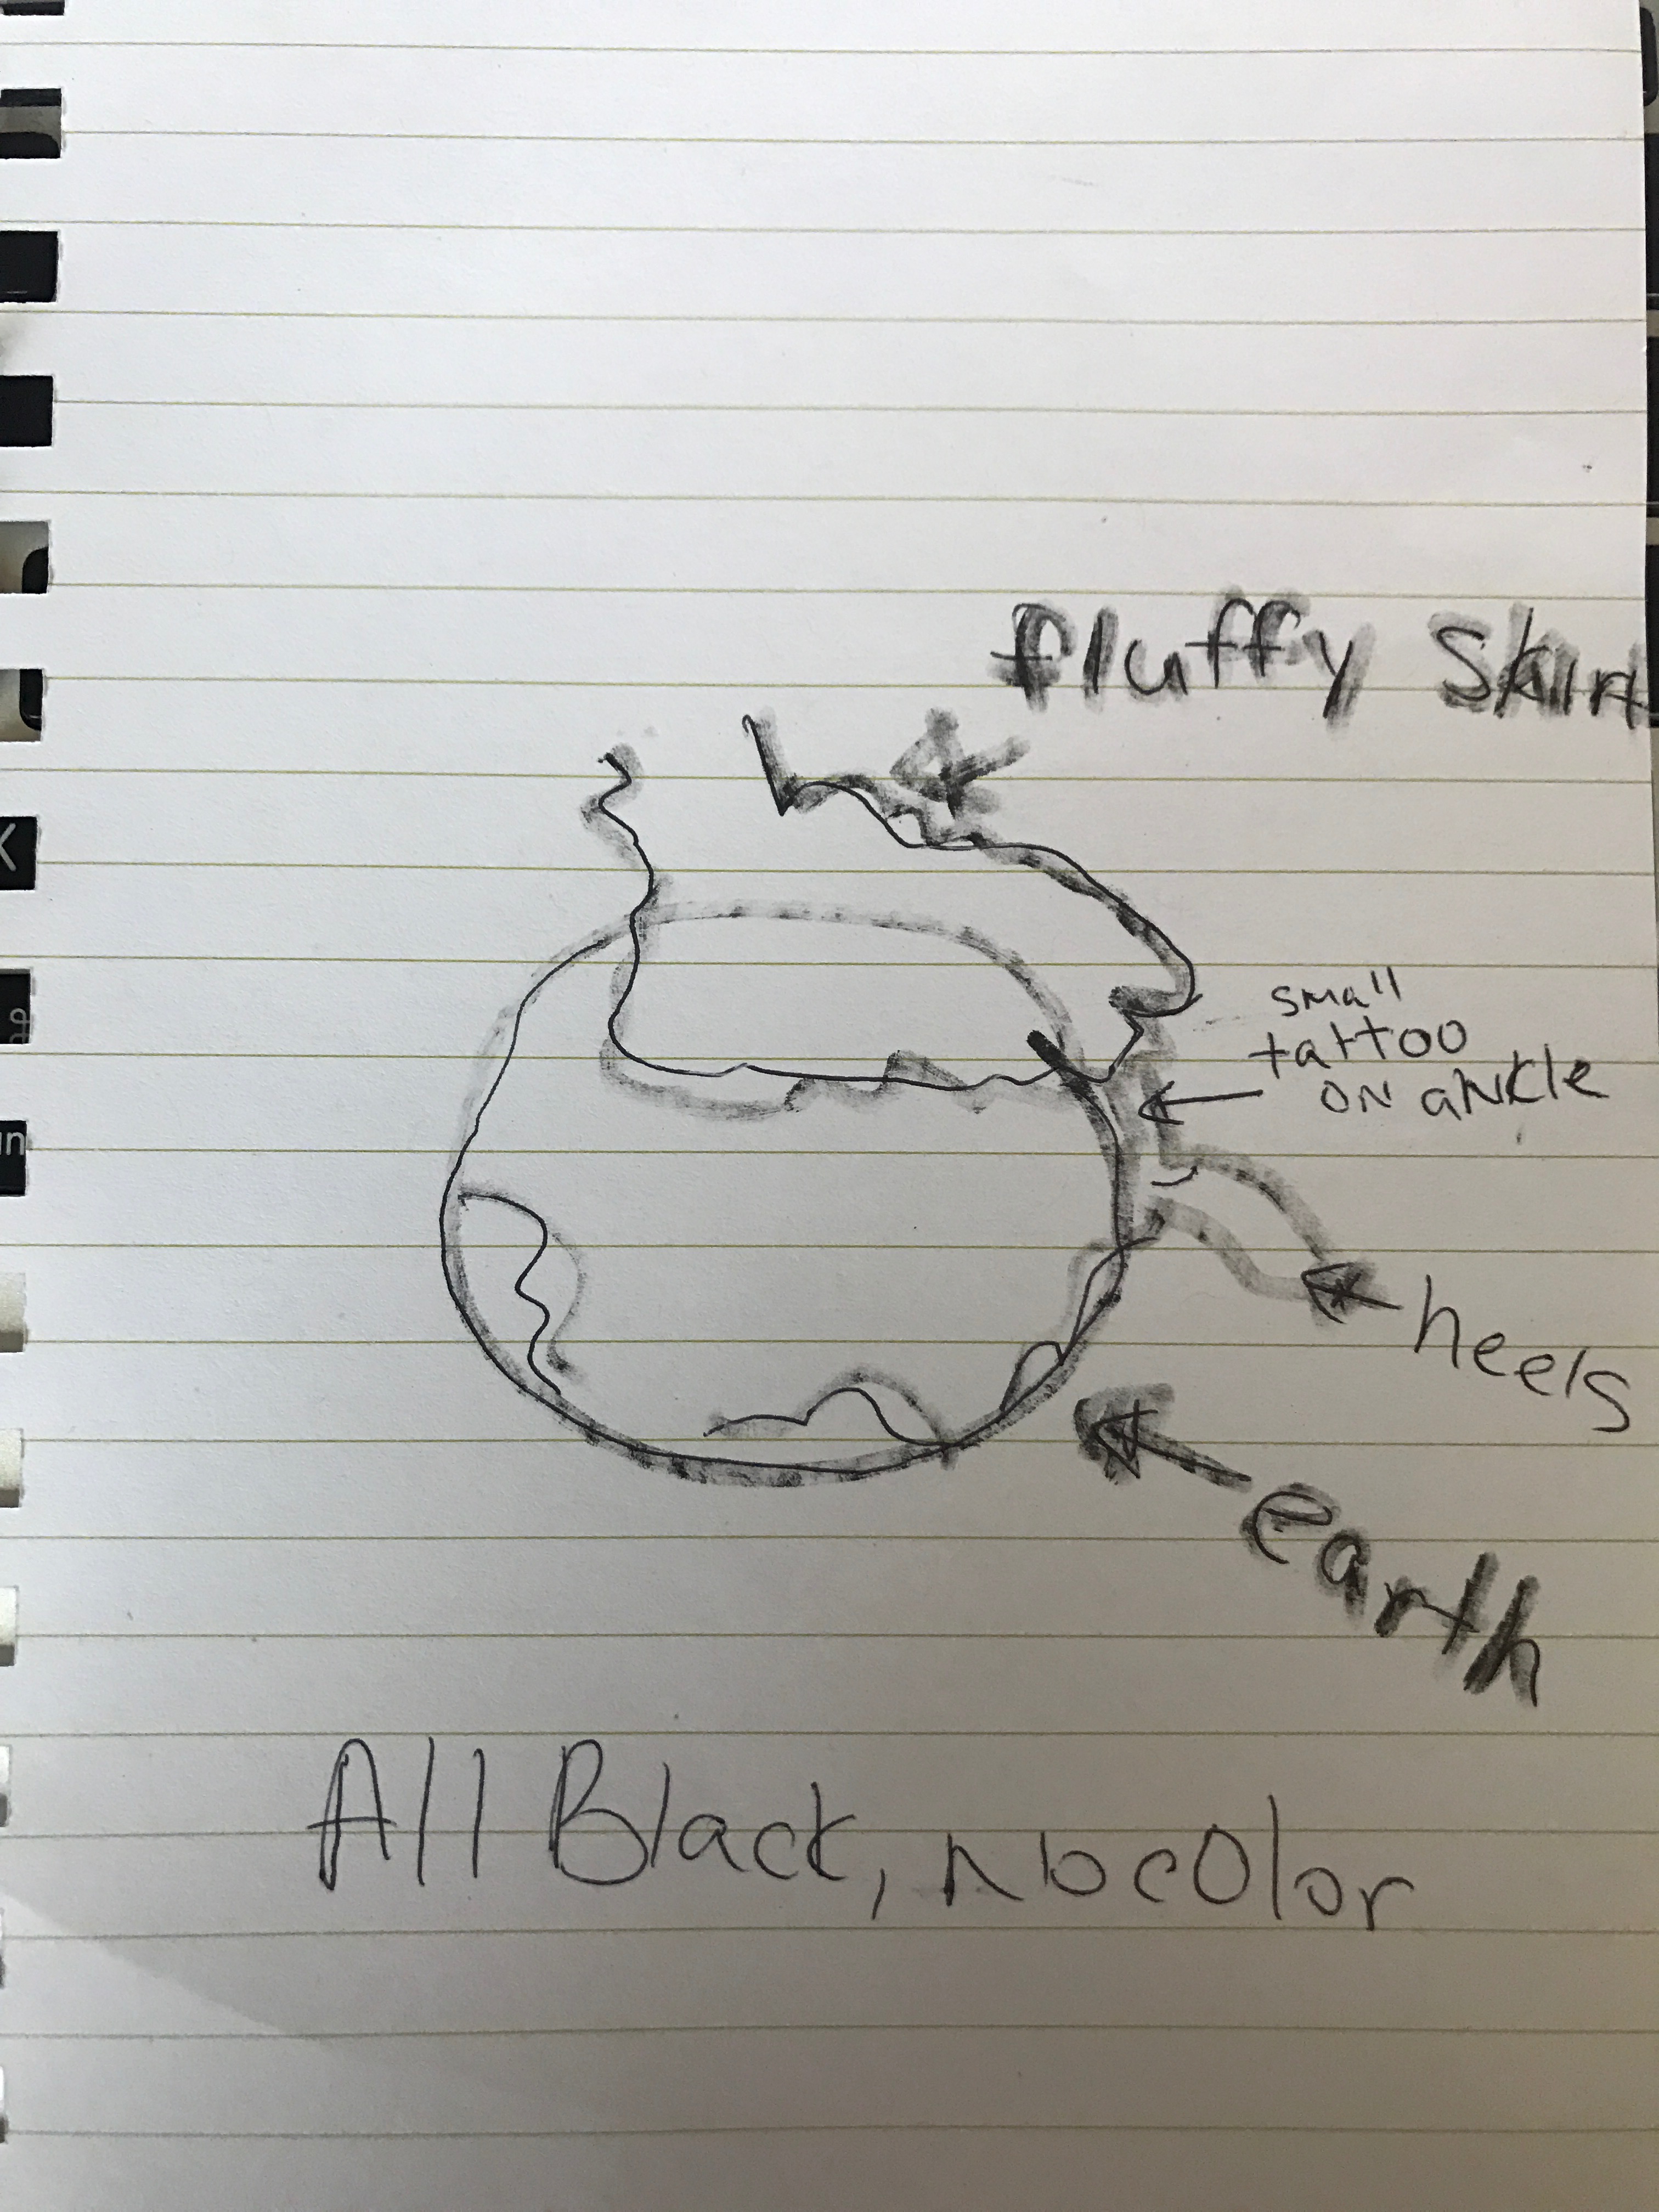 fluffy Skirt
small
tattoo
on ankle
heels
earth
All Black, no color